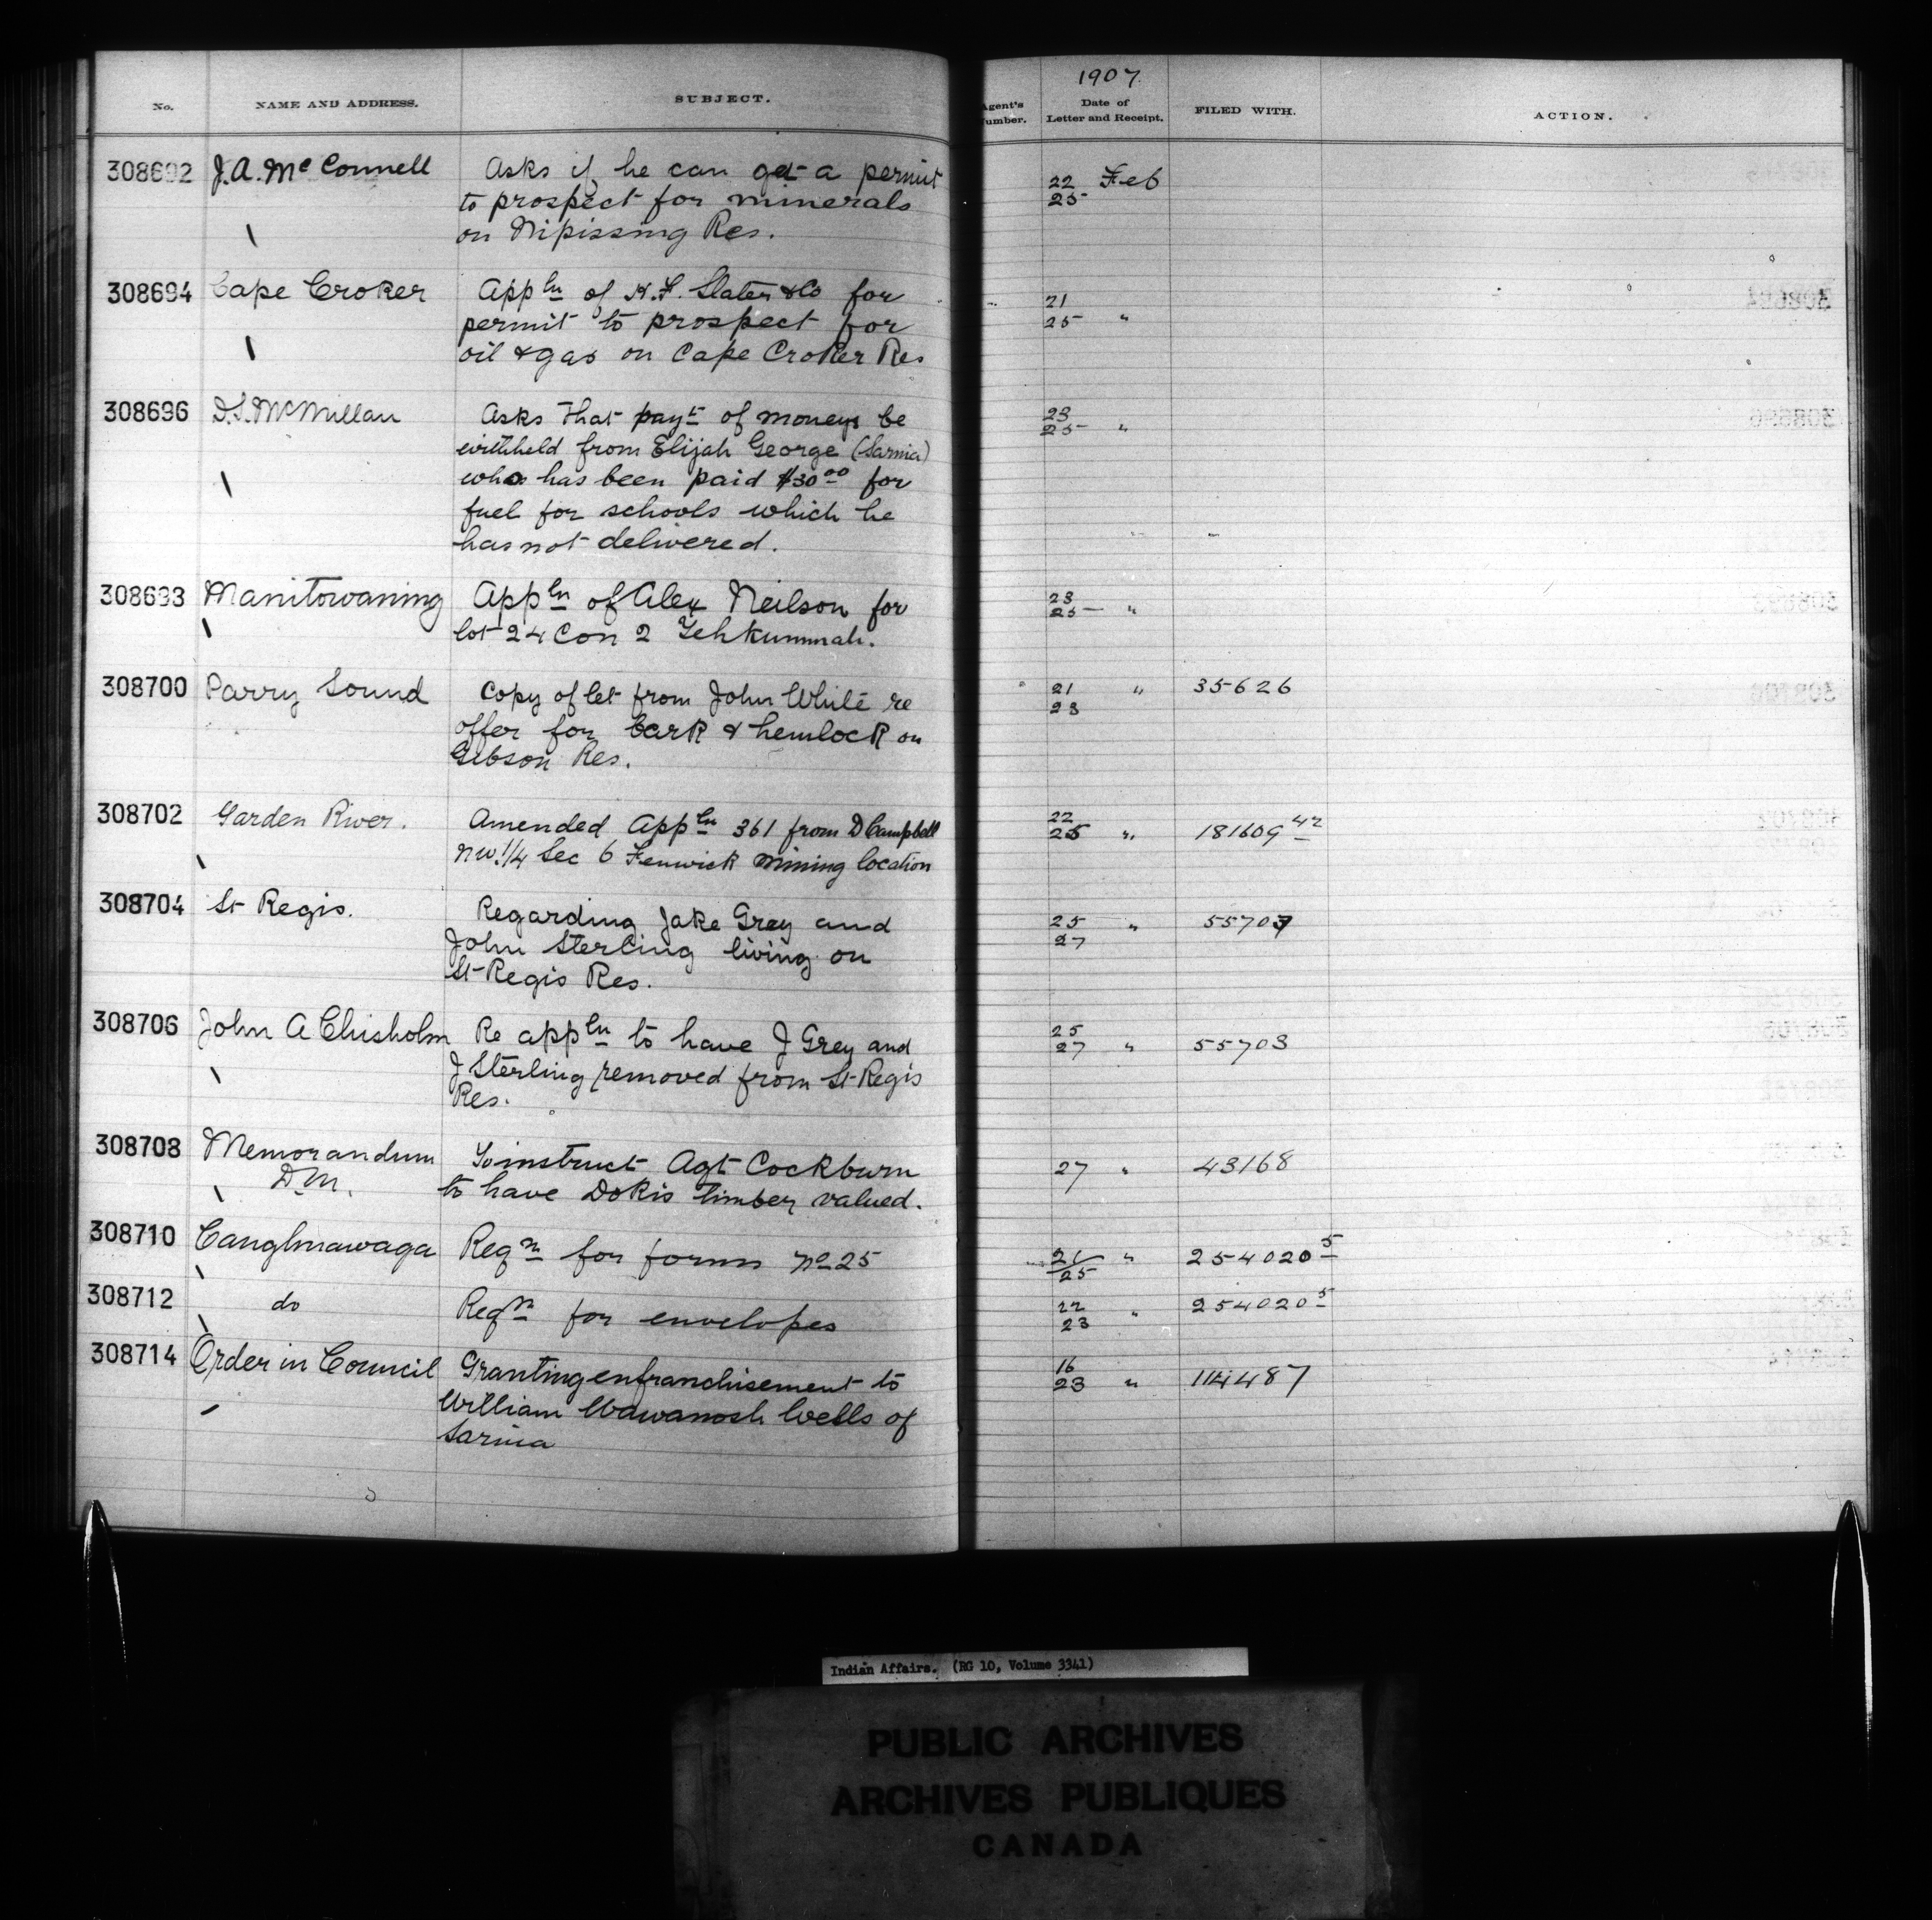 1907
No. NAME AND ADDRESS. SUBJECT. Agent's Number. Date of Letter and Receipt. FILED WITH. ACTION.
308692 J. A. McConnell Asks if he can get a permit 22 Feb
to prospect for minerals 25
on Nipissing Res.
308694 Cape Croker Appln of H. F. Slater & Co for 21
permit to prospect for 25 "
oil & gas on Cape Croker Res
308696 D.S. McMillan Asks that payt of moneys be 23
withheld from Elijah George (Sarnia) 25 "
who has been paid $30 00 for
fuel for schools which he
has not delivered.
308698 Manitowaning Appln of Alex Neilson for 23
lot 24 Con 2 Tehkummah. 25 "
308700 Parry Sound Copy of let from John White re 21 " 35626
offer for bark & hemlock on 23
Gibson Res.
308702 Garden River. Amended Appln 361 from D Campbell 22
25 " 181609 42
NW. 1/4 Sec 6 Fenwick mining location
308704 St Regis. Regarding Jake Grey and 25 " 55703
John Sterling living on 27
St Regis Res.
308706 John A Chisholm Re appln to have J Grey and 25
27 " 55703
J Sterling removed from St Regis
Res.
308708 Memorandum To instruct Agt Cockburn 27 " 43168
D.M. to have Dokis timber valued.
308710 Caughnawaga Reqn for forms No 25 21 " 254020 5
25
308712 do Reqn for envelopes 22 " 254020 5
23
308714 Order in Council Granting enfranchisement to 16
23 " 114487
William Wawanosh Wells of
Sarnia
Indian Affairs. (RG 10, Volume 3341)
PUBLIC ARCHIVES
ARCHIVES PUBLIQUES
CANADA